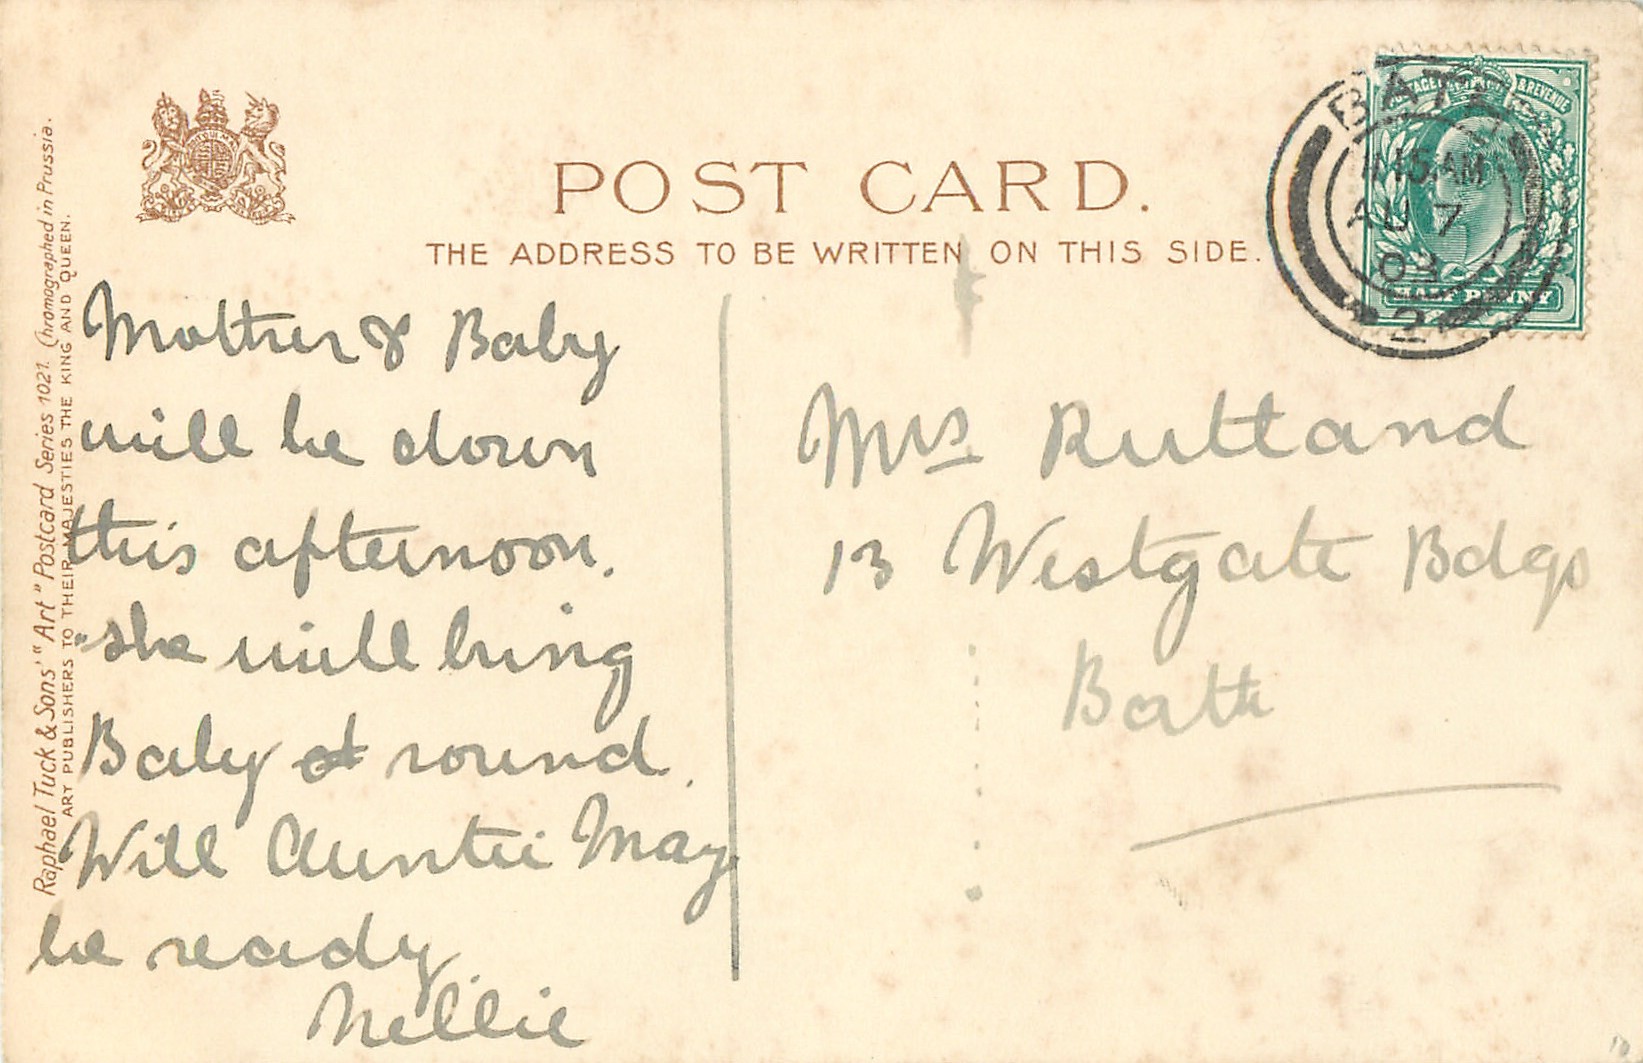 POST CARD.
THE ADDRESS TO BE WRITTEN ON THIS SIDE.
Raphael Tuck & Sons' "Art" Postcard Series 1021. Chromographed in Prussia.
ART PUBLISHERS TO THEIR MAJESTIES THE KING AND QUEEN.
Mother & Baby
will be down
this afternoon.
she will bring
Baby round.
Will Auntie May
be ready
Nellie
Mrs Rutland
13 Westgate Bdgs
Bath
POSTAGE & REVENUE
HALF PENNY
BATH
11.15AM
AU 7
03
2